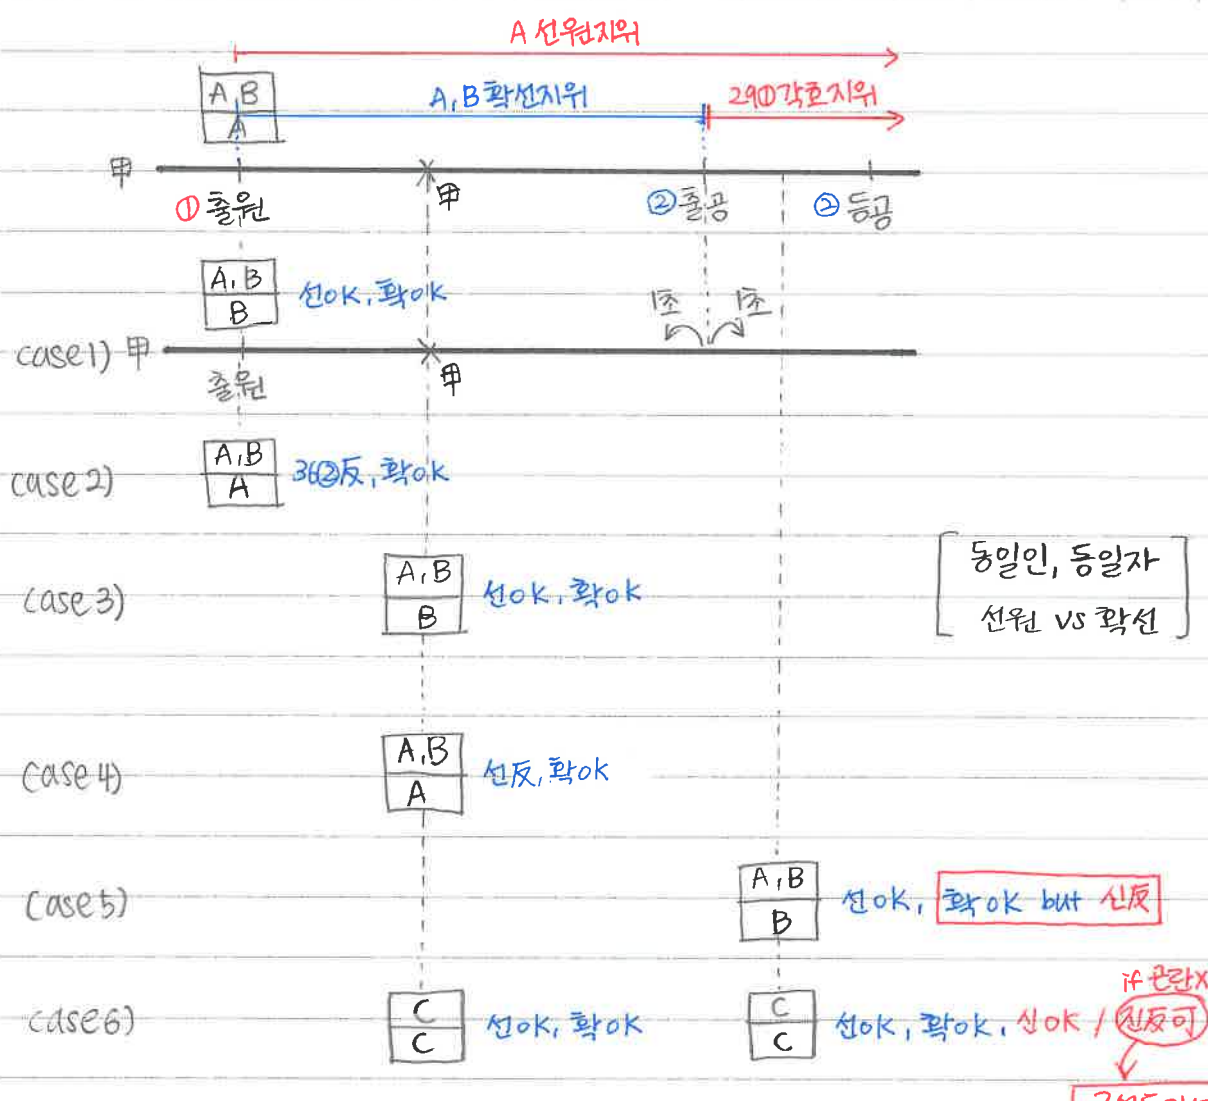 A 선원지위
A, B
A
A, B 확선지위
29① 각호지위
甲
① 출원
甲
② 출공
② 등공
A, B
B
선OK, 확OK
1초
1초
case1) 甲
출원
甲
case2)
A, B
A
36②反, 확OK
case3)
A, B
B
선OK, 확OK
동일인, 동일자
선원 vs 확선
case4)
A, B
A
선反, 확OK
case5)
A, B
B
선OK, 확OK but 신反
if 곤란X
case6)
C
C
선OK, 확OK
C
C
선OK, 확OK, 신OK / 진反可